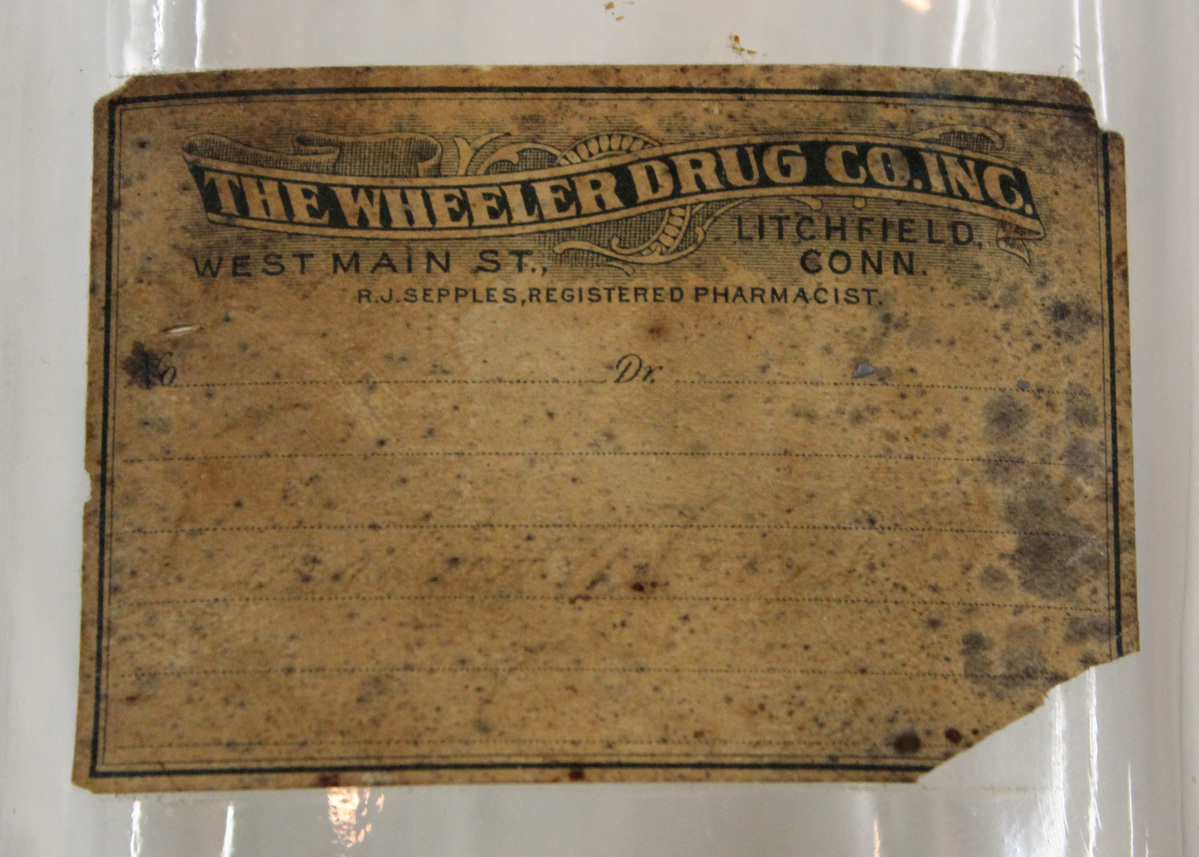 THE WHEELER DRUG CO. INC.
WEST MAIN ST., LITCHFIELD, CONN.
R.J. SEPPLES, REGISTERED PHARMACIST.
No Dr.